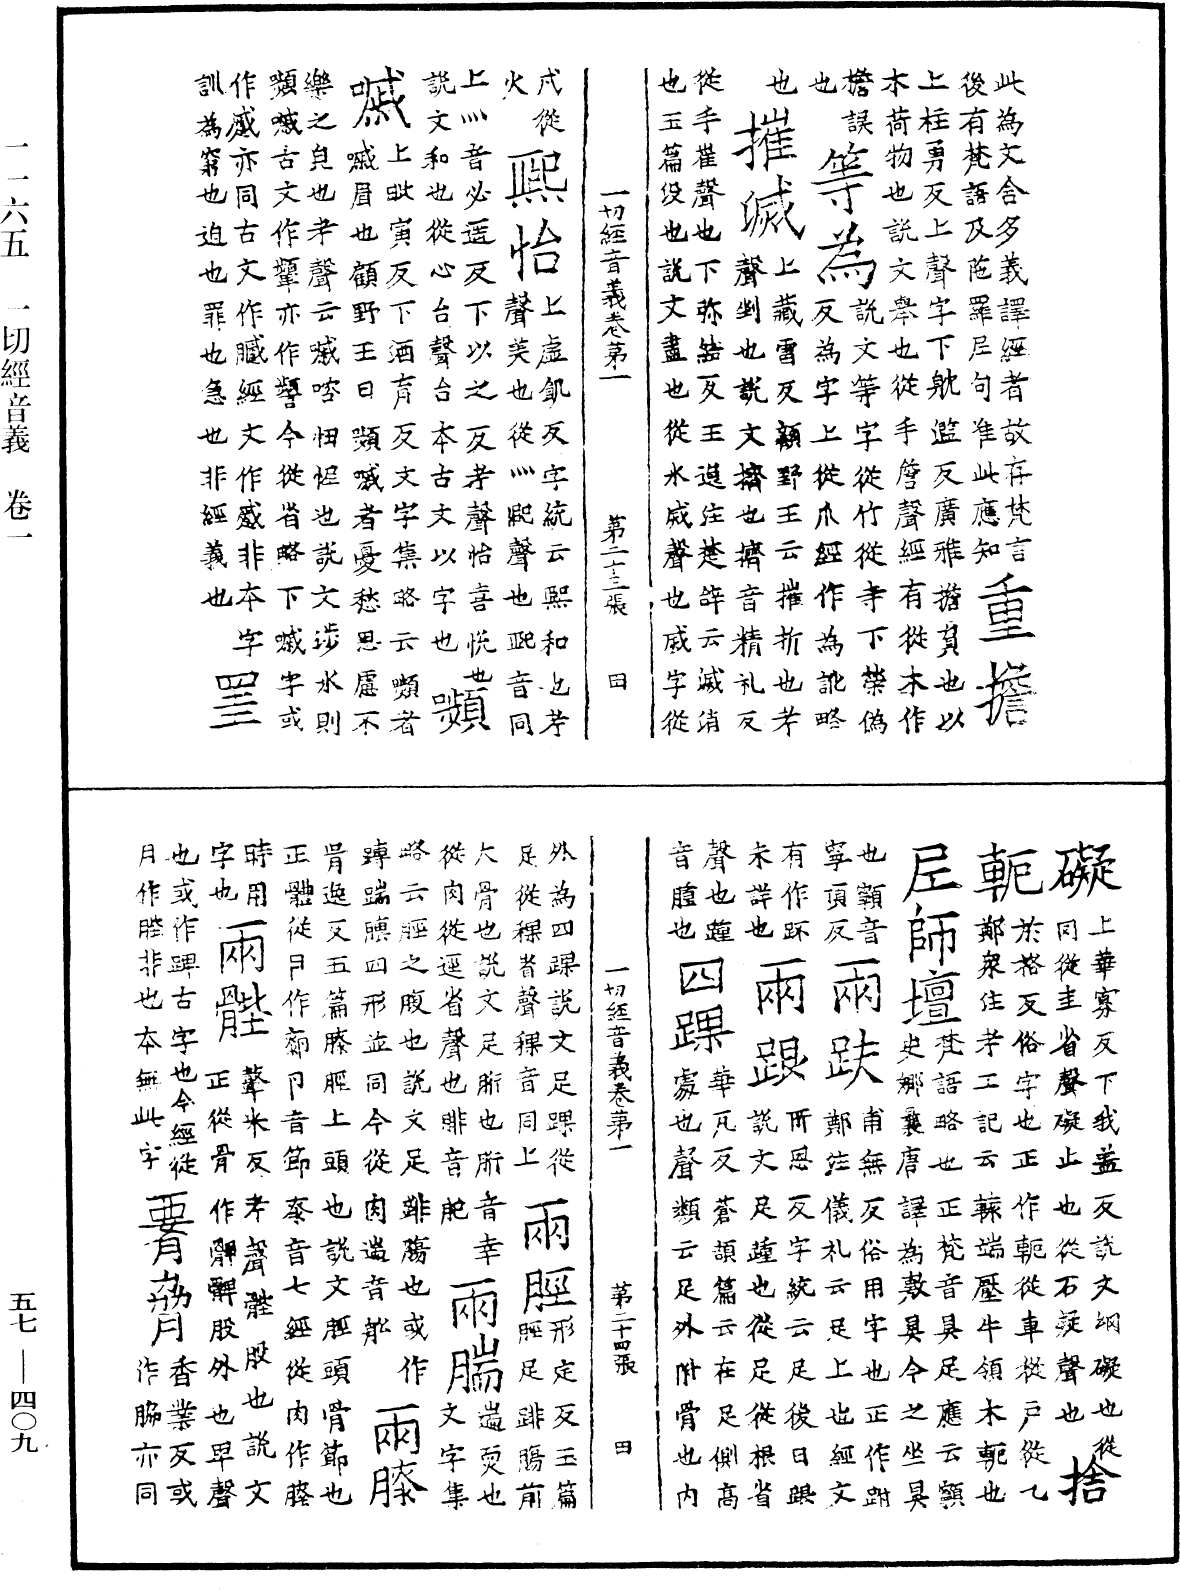 一一六五 一切經音義 卷一
此為文含多義譯經者故存梵言
後有梵語及陁羅尼句准此應知 重擔
上柱勇反上聲字下躭濫反廣雅擔負也以
木荷物也說文舉也從手詹聲經有從木作
檐誤
也 等為 說文等字從竹從寺下榮偽
反為字上從爪經作為訛略
也 摧滅 上藏雷反顧野王云摧折也考
聲剉也說文擠也擠音精礼反
從手崔聲也下弥結反王逸注楚辝云滅消
也玉篇役也說文盡也從水烕聲也烕字從
一切經音義卷第一 第二十三張 田
戌從
火 熙怡 上虛飢反字統云熙和也考
聲美也從灬巸聲也巸音同
上灬音必遥反下以之反考聲怡喜悅也
說文和也從心台聲台本古文以字也 嚬
嘁 上毗寅反下酒育反文字集略云嚬者
嘁眉也顧野王曰嚬嘁者憂愁思慮不
樂之皃也考聲云嘁咨忸怩也說文涉水則
嚬嘁古文作顰亦作颦今從省略下嘁字或
作慼亦同古文作臧經文作慼非本字 罣
訓為窮也迫也罪也急也非經義也
礙 上華寡反下我盖反說文綱礙也從
同從圭省聲礙止也從石疑聲也 捨
軛 於格反俗字也正作軛從車從戶從乙
鄭衆住考工記云轅端壓牛領木軛也
尼師壇 梵語略也正梵音具足應云顊
史娜曩唐譯為敷具今之坐具
也顊音
寧頂反 兩趺 甫無反俗用字也正作跗
鄭注儀礼云足上也經文
有作跃
未詳也 兩跟 所恩反字統云足後曰跟
說文足踵也從足從根省
聲也踵
音腫也 四踝 華凡反蒼頡篇云在足側高
處也聲類云足外附骨也內
一切經音義卷第一 第二十四張 田
外為四踝說文足踝從
足從稞省聲稞音同上 兩脛 形定反玉篇
脛足跳膓前
大骨也說文足胻也胻音幸 兩腨 遄耎也
從肉從逕省聲也腓音肥 文字集
略云脛之腹也說文足跳膓也或作
䏝踹腝四形並同今從肉遄音舩 兩膝
胥逸反五篇膝脛上頭也說文脛頭骨節也
正體從卪作厀卪音節桼音七經從肉作膝
時用
字也 兩髀 鼙米反考聲髀股也說文
正從骨作髀髀股外也卑聲
也或作踝古字也今經從
月作膍非也本無此字 要脅 香業反或
作脇亦同
五七——四〇九